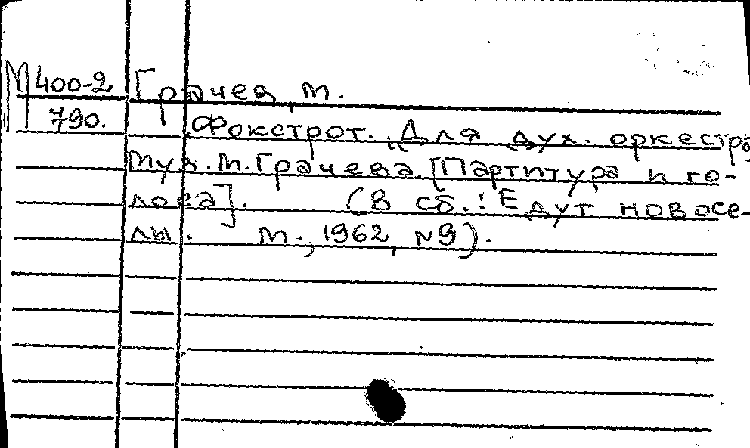 М 400-2 Грачев, М.
790.
Фокстрот. Для дух. оркестра
Муз. М. Грачева. [Партитура и го-
лоса]. (В сб.: Едут новосе-
лы. М., 1962, №9).